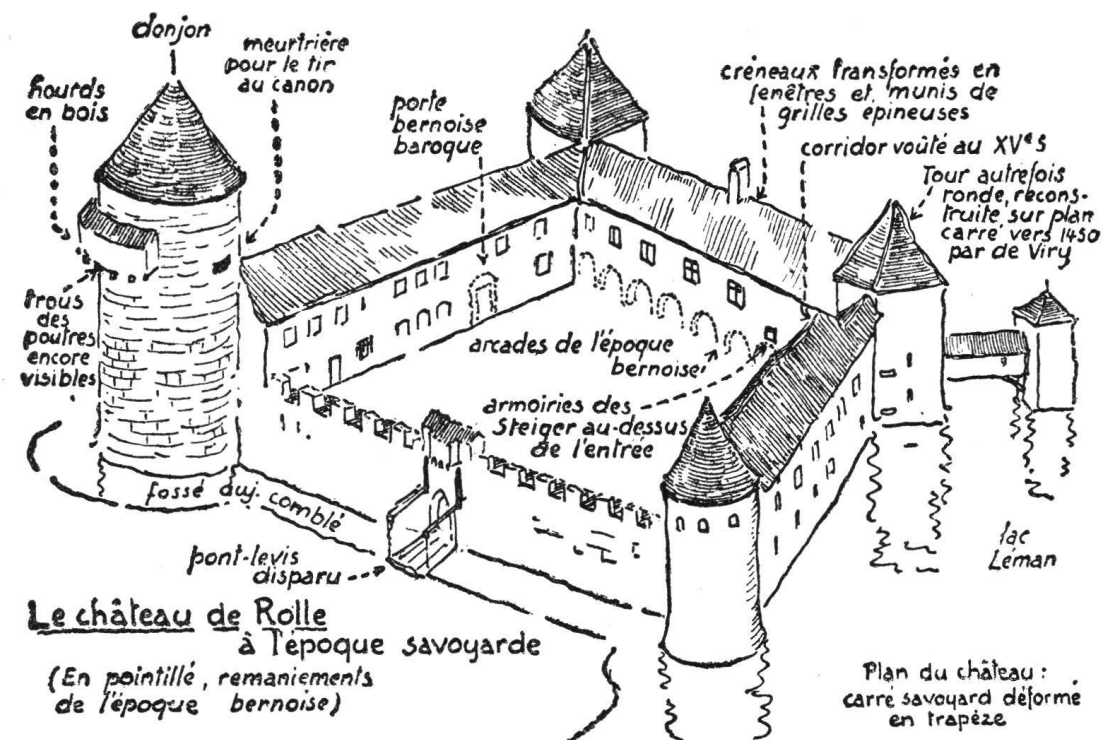 donjon
hourds
en bois
meurtrière
pour le tir
au canon
porte
bernoise
baroque
créneaux transformés en
fenêtres et munis de
grilles épineuses
corridor voûté au XVe S
Tour autrefois
ronde, recons-
truite sur plan
carré vers 1450
par de Viry
trous
des
poutres
encore
visibles
arcades de l'époque
bernoise
armoiries des
Steiger au-dessus
de l'entrée
fossé auj. comblé
pont-levis
disparu
lac
Léman
Le château de Rolle
à l'époque savoyarde
(En pointillé, remaniements
de l'époque bernoise)
Plan du château :
carré savoyard déformé
en trapèze